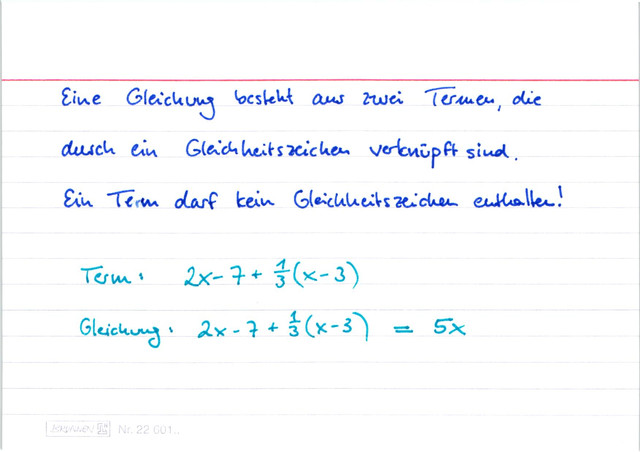 Eine Gleichung besteht aus zwei Termen, die
durch ein Gleichheitszeichen verknüpft sind.
Ein Term darf kein Gleichheitszeichen enthalten!
Term: 2x - 7 + 1/3 (x - 3)
Gleichung: 2x - 7 + 1/3 (x - 3) = 5x
BRUNNEN Nr. 22 601..